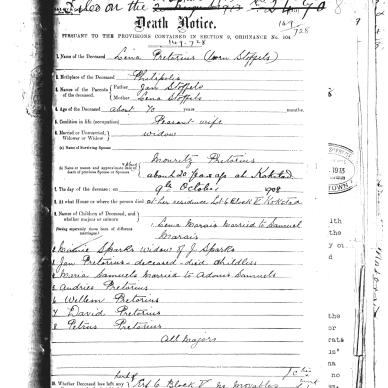 Filed on the
Death Notice.
PURSUANT TO THE PROVISIONS CONTAINED IN SECTION 9, ORDINANCE No. 104
1. Name of the Deceased Lena Pretorius (born Stoffels)
2. Birthplace of the Deceased Philipolis
3. Names of the Parents of the deceased. Father Jan Stoffels
Mother Lena Stoffels
4. Age of the Deceased about 70 years months.
5. Condition in life (occupation) Peasant wife
6. Married or Unmarried, Widower or Widow widow
(a) Name of Surviving Spouse
Mouritz Pretorius
about 20 years ago at Kokstad
7. The day of the decease: on 9th October 1908
8. At what House or where the person died at her residence Lot 6 Block V Kokstad
9. Names of Children of Deceased, and whether majors or minors
1 Lena Marais Married to Samuel
Marais
2 Minnie Sparks widow of J. Sparks
3 Jan Pretorius - deceased - died childless
4 Maria Samuels Married to Adonis Samuels
5 Andries Pretorius
6 Willem Pretorius
7 David Pretorius
8 Petrus Pretorius
All majors
10. Whether Deceased left any Lot 6 Block V no movables